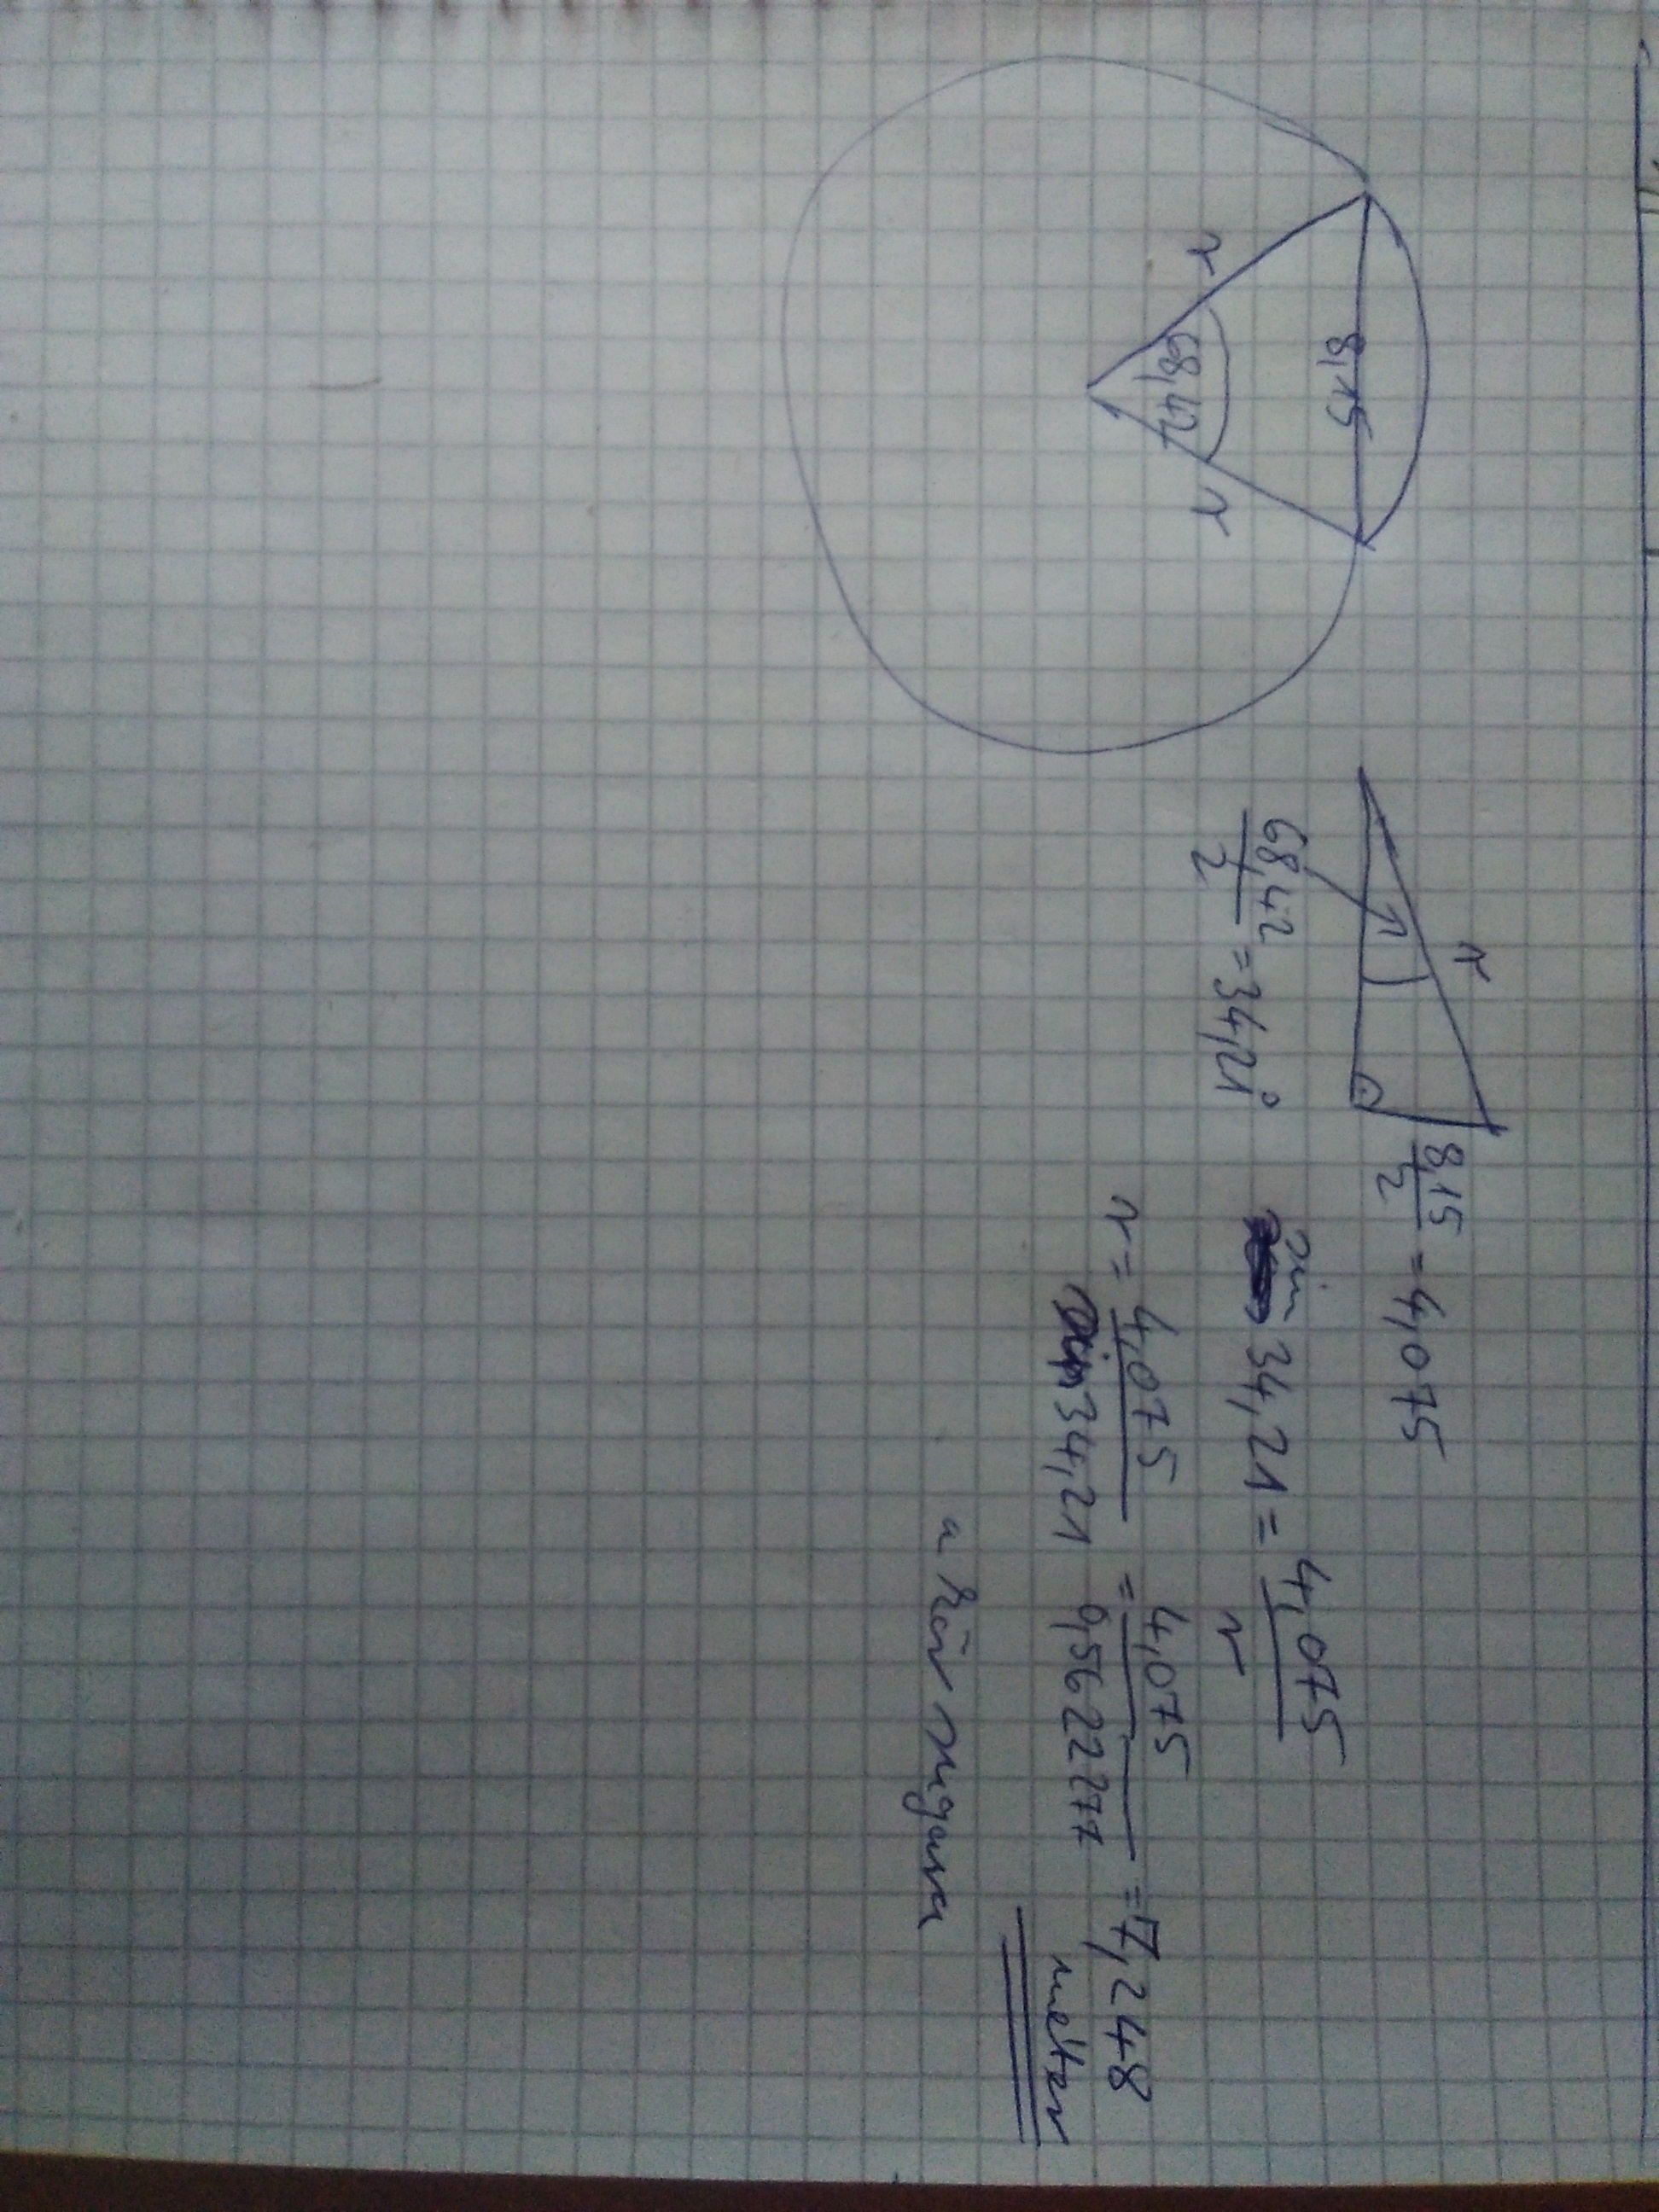 8,15
r
68,42
r
r
8,15/2 = 4,075
68,42/2 = 34,21°
sin 34,21 = 4,075/r
r = 4,075/sin 34,21 = 4,075/0,5622277 = 7,248
méter
a kör sugara